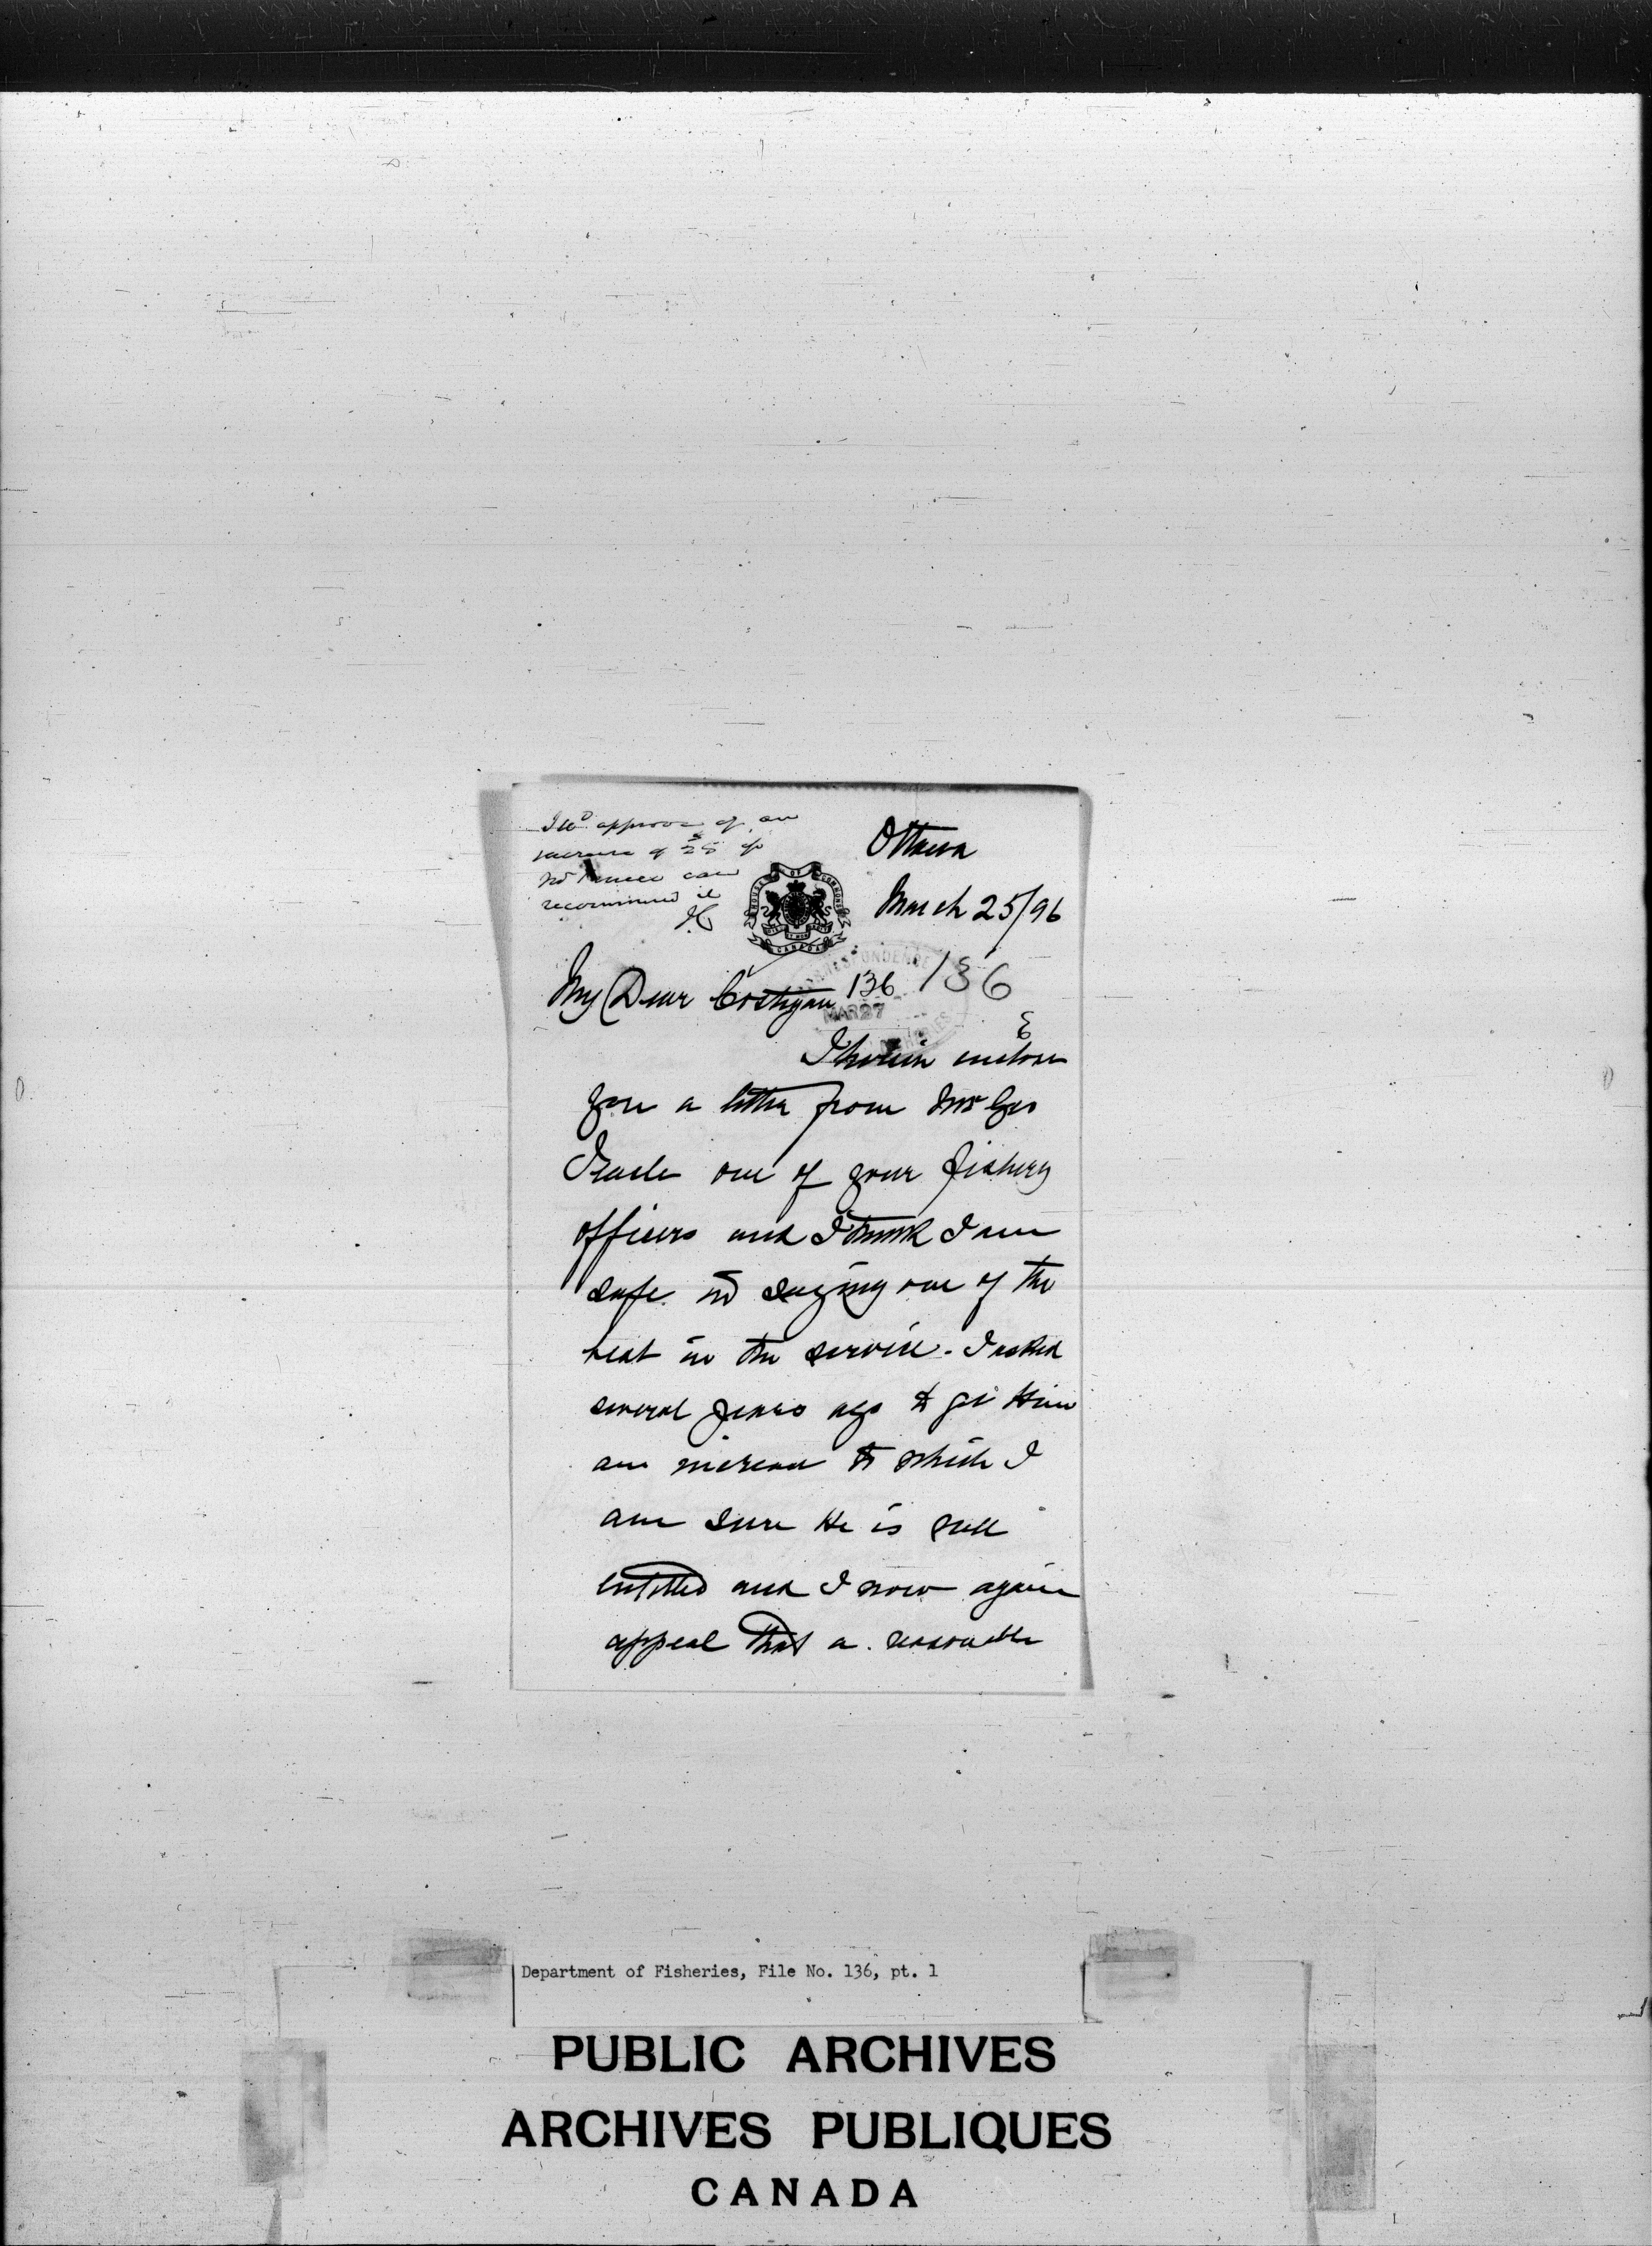 I wd approve of an
increase of $25 if
Prince can
recommend it
JC
Ottawa
March 25/96
HOUSE OF COMMONS
CANADA
CORRESPONDENCE
136 136
MAR 27
FISHERIES
My Dear Costigan
I herein enclose
you a letter from Mr Geo
one of your fishery
officers and I think I am
safe in saying one of the
best in the service. I asked
several years ago to get Him
an increase to which I
am sure He is well
entitled and I now again
appeal that a reasonable
Department of Fisheries, File No. 136, pt. 1
PUBLIC ARCHIVES
ARCHIVES PUBLIQUES
CANADA